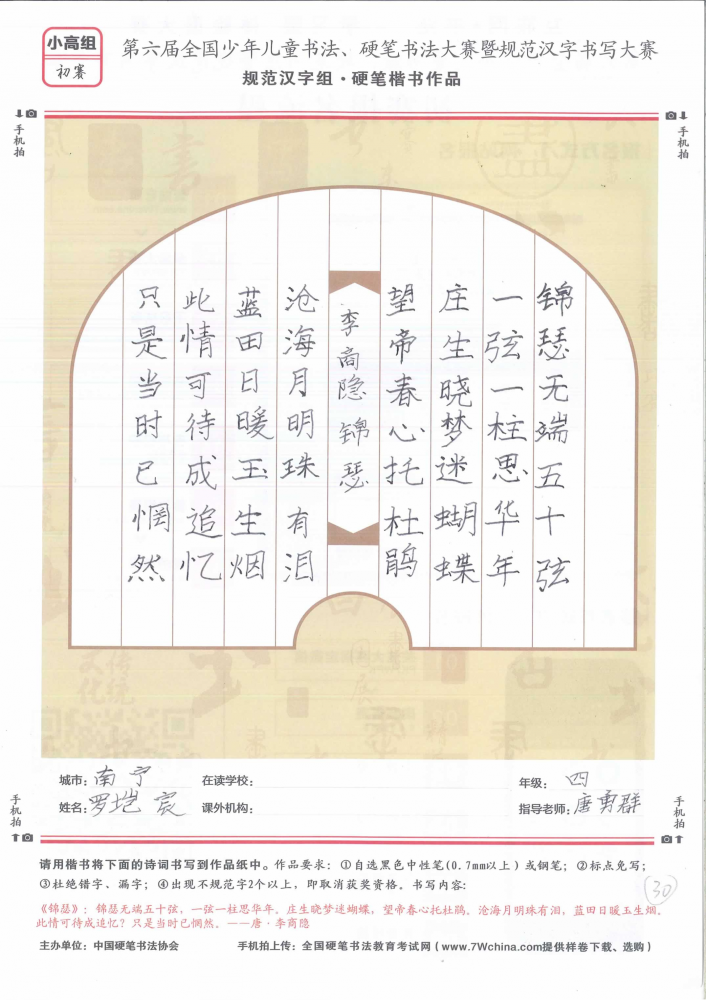 小高组
初赛
第六届全国少年儿童书法、硬笔书法大赛暨规范汉字书写大赛
规范汉字组·硬笔楷书作品
手机拍
手机拍
锦瑟无端五十弦
一弦一柱思华年
庄生晓梦迷蝴蝶
望帝春心托杜鹃
李商隐锦瑟
沧海月明珠有泪
蓝田日暖玉生烟
此情可待成追忆
只是当时已惘然
城市：南宁 在读学校： 年级：四
姓名：罗垲宸 课外机构： 指导老师：唐勇群
手机拍
手机拍
请用楷书将下面的诗词书写到作品纸中。作品要求：①自选黑色中性笔(0.7mm以上)或钢笔；②标点免写；
③杜绝错字、漏字；④出现不规范字2个以上，即取消获奖资格。书写内容：
30
《锦瑟》：锦瑟无端五十弦，一弦一柱思华年。庄生晓梦迷蝴蝶，望帝春心托杜鹃。沧海月明珠有泪，蓝田日暖玉生烟。
此情可待成追忆？只是当时已惘然。——唐·李商隐
主办单位：中国硬笔书法协会 手机拍上传：全国硬笔书法教育考试网（www.7Wchina.com提供样卷下载、选购）